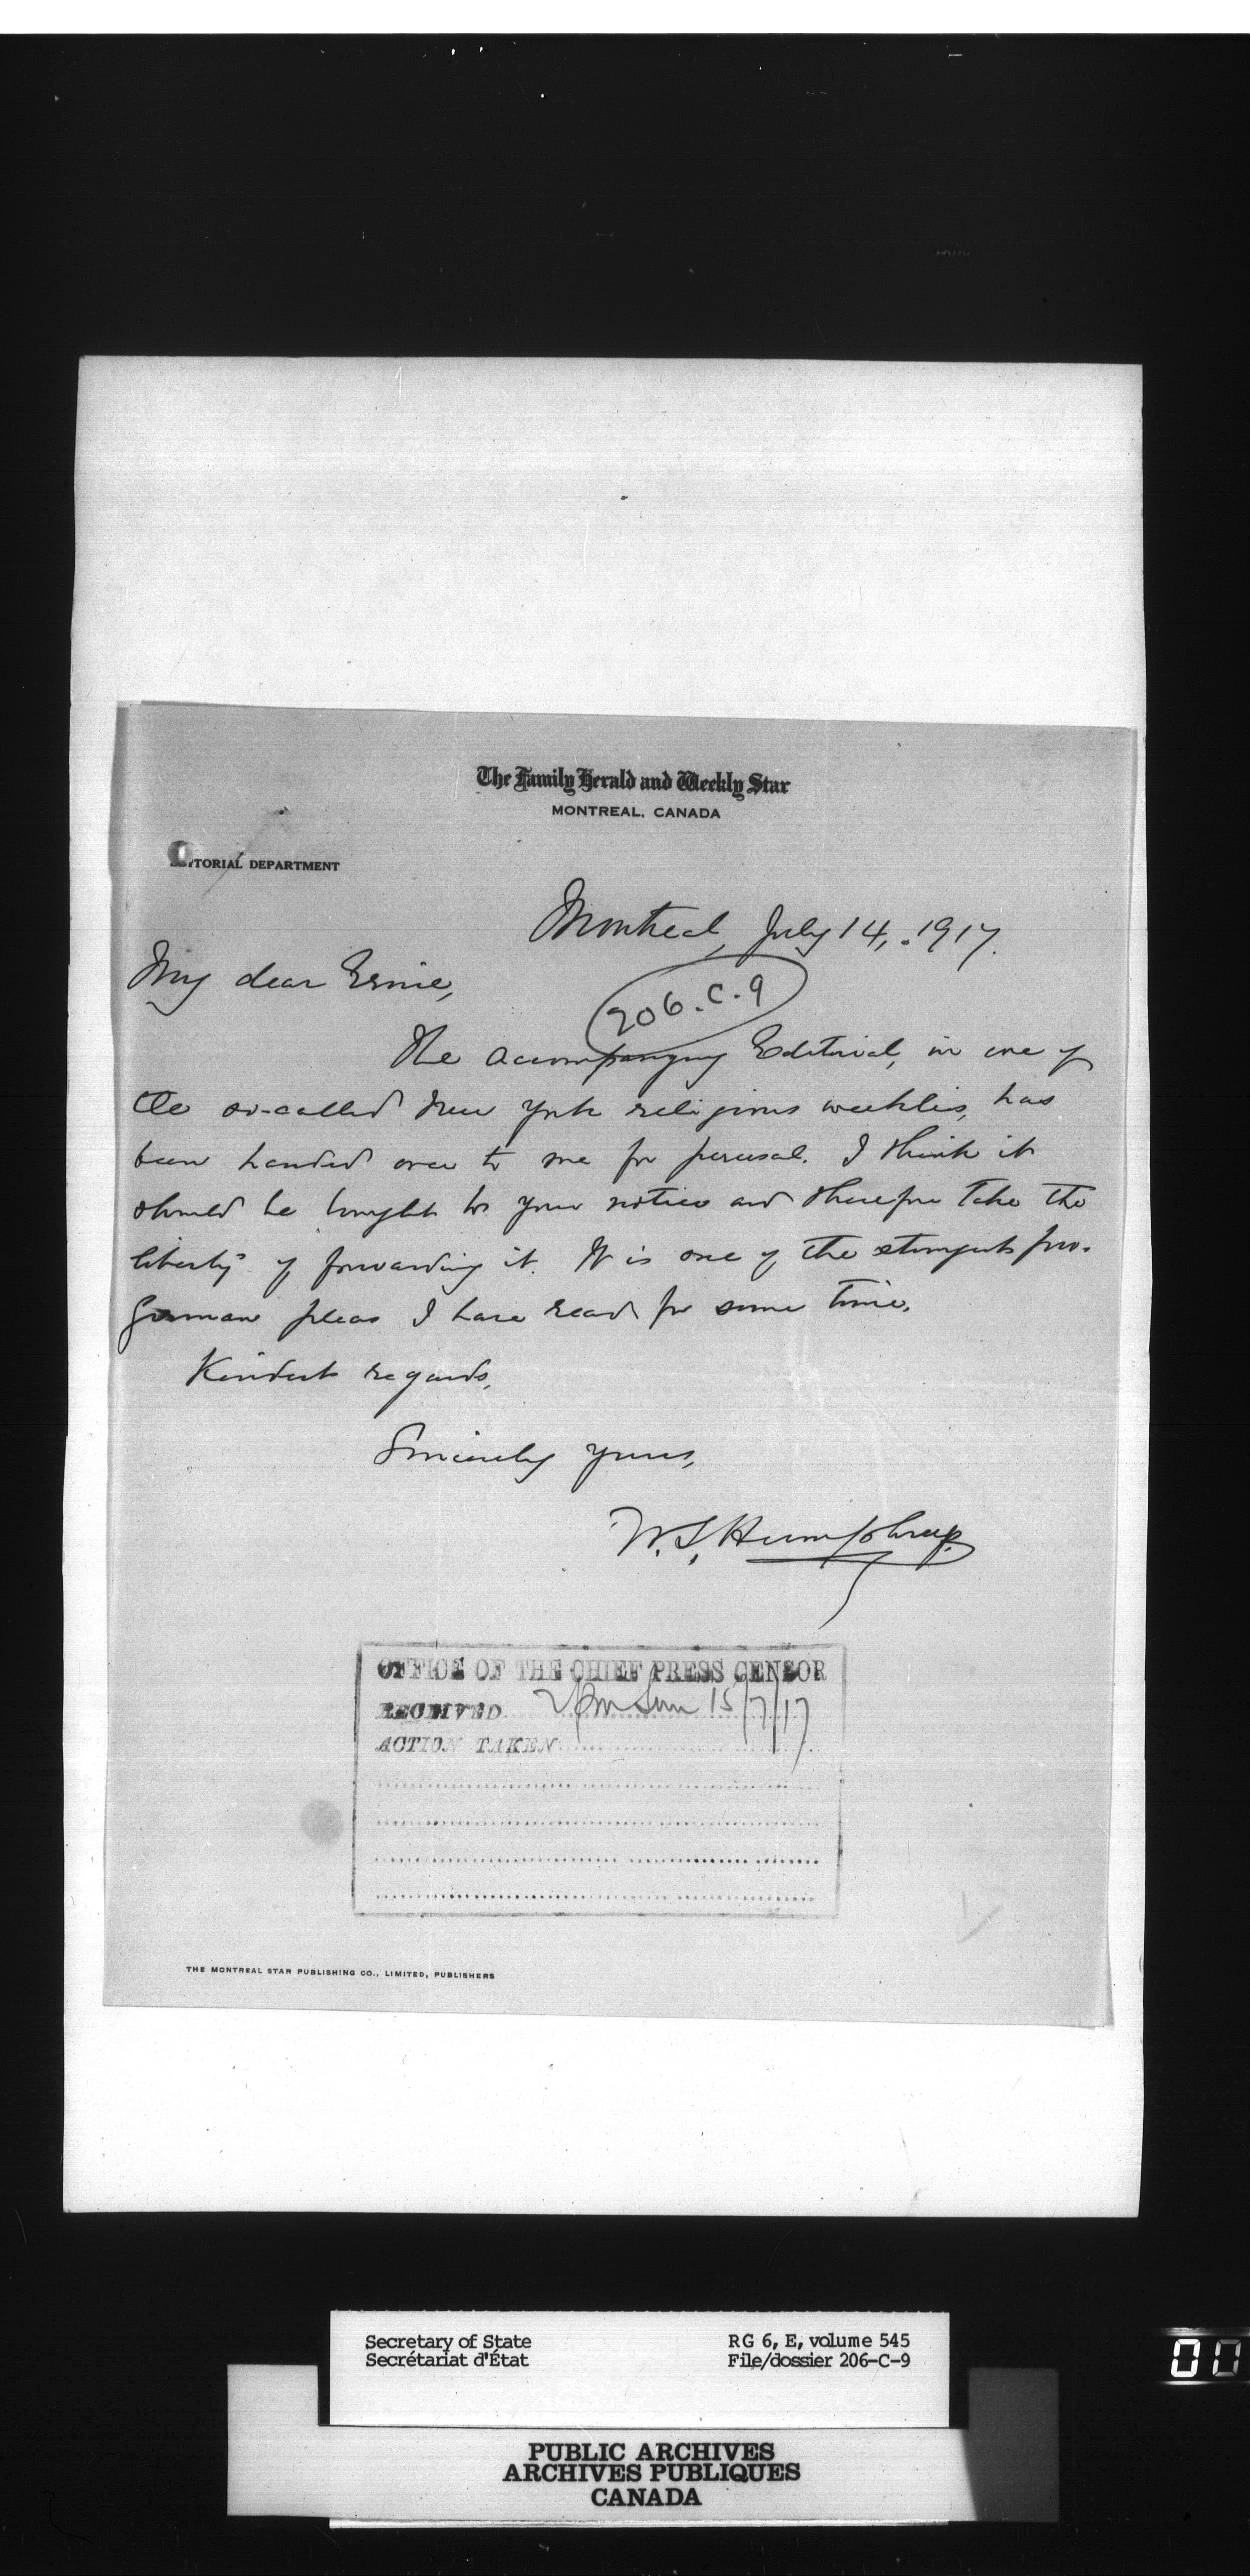 The Family Herald and Weekly Star
MONTREAL, CANADA
EDITORIAL DEPARTMENT
Montreal, July 14, 1917.
My dear Ernie,
206.C.9
The accompanying Editorial, in one of
the so-called New York religious weeklies, has
been handed over to me for perusal. I think it
should be brought to your notice and therefore take the
liberty of forwarding it. It is one of the strongest pro-
German pleas I have read for some time.
Kindest regards,
Sincerely yours,
W. S. Humphreys.
OFFICE OF THE CHIEF PRESS CENSOR
RECEIVED 2 pm Sun 15/7/17
ACTION TAKEN
THE MONTREAL STAR PUBLISHING CO., LIMITED, PUBLISHERS
Secretary of State RG 6, E, volume 545
Secrétariat d'État File/dossier 206-C-9
00
PUBLIC ARCHIVES
ARCHIVES PUBLIQUES
CANADA